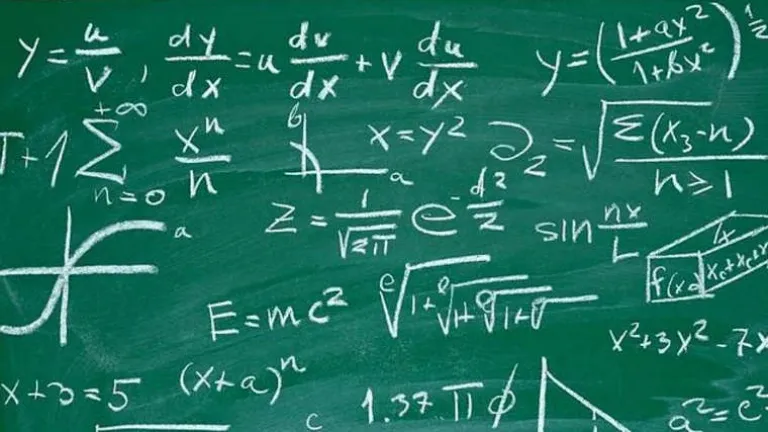 y = u/v, dy/dx = u dv/dx + v du/dx
y = ((1+ax²)/(1+bx²))^(1/2)
T+1 Σ_(n=0)^(+∞) xⁿ/n
b
a
x = y²
∂₂ = √(Σ(x₃-n)/n≥1)
a
z = 1/√(2π) e^(-d²/2)
sin nx/L
x
f(x
E = mc²
ᵉ√(1+ᵉ√(1+ᵉ√(1+√
x²+3x²-7x
x+3=5
(x+a)ⁿ
c
1.37 π φ
a² = c²